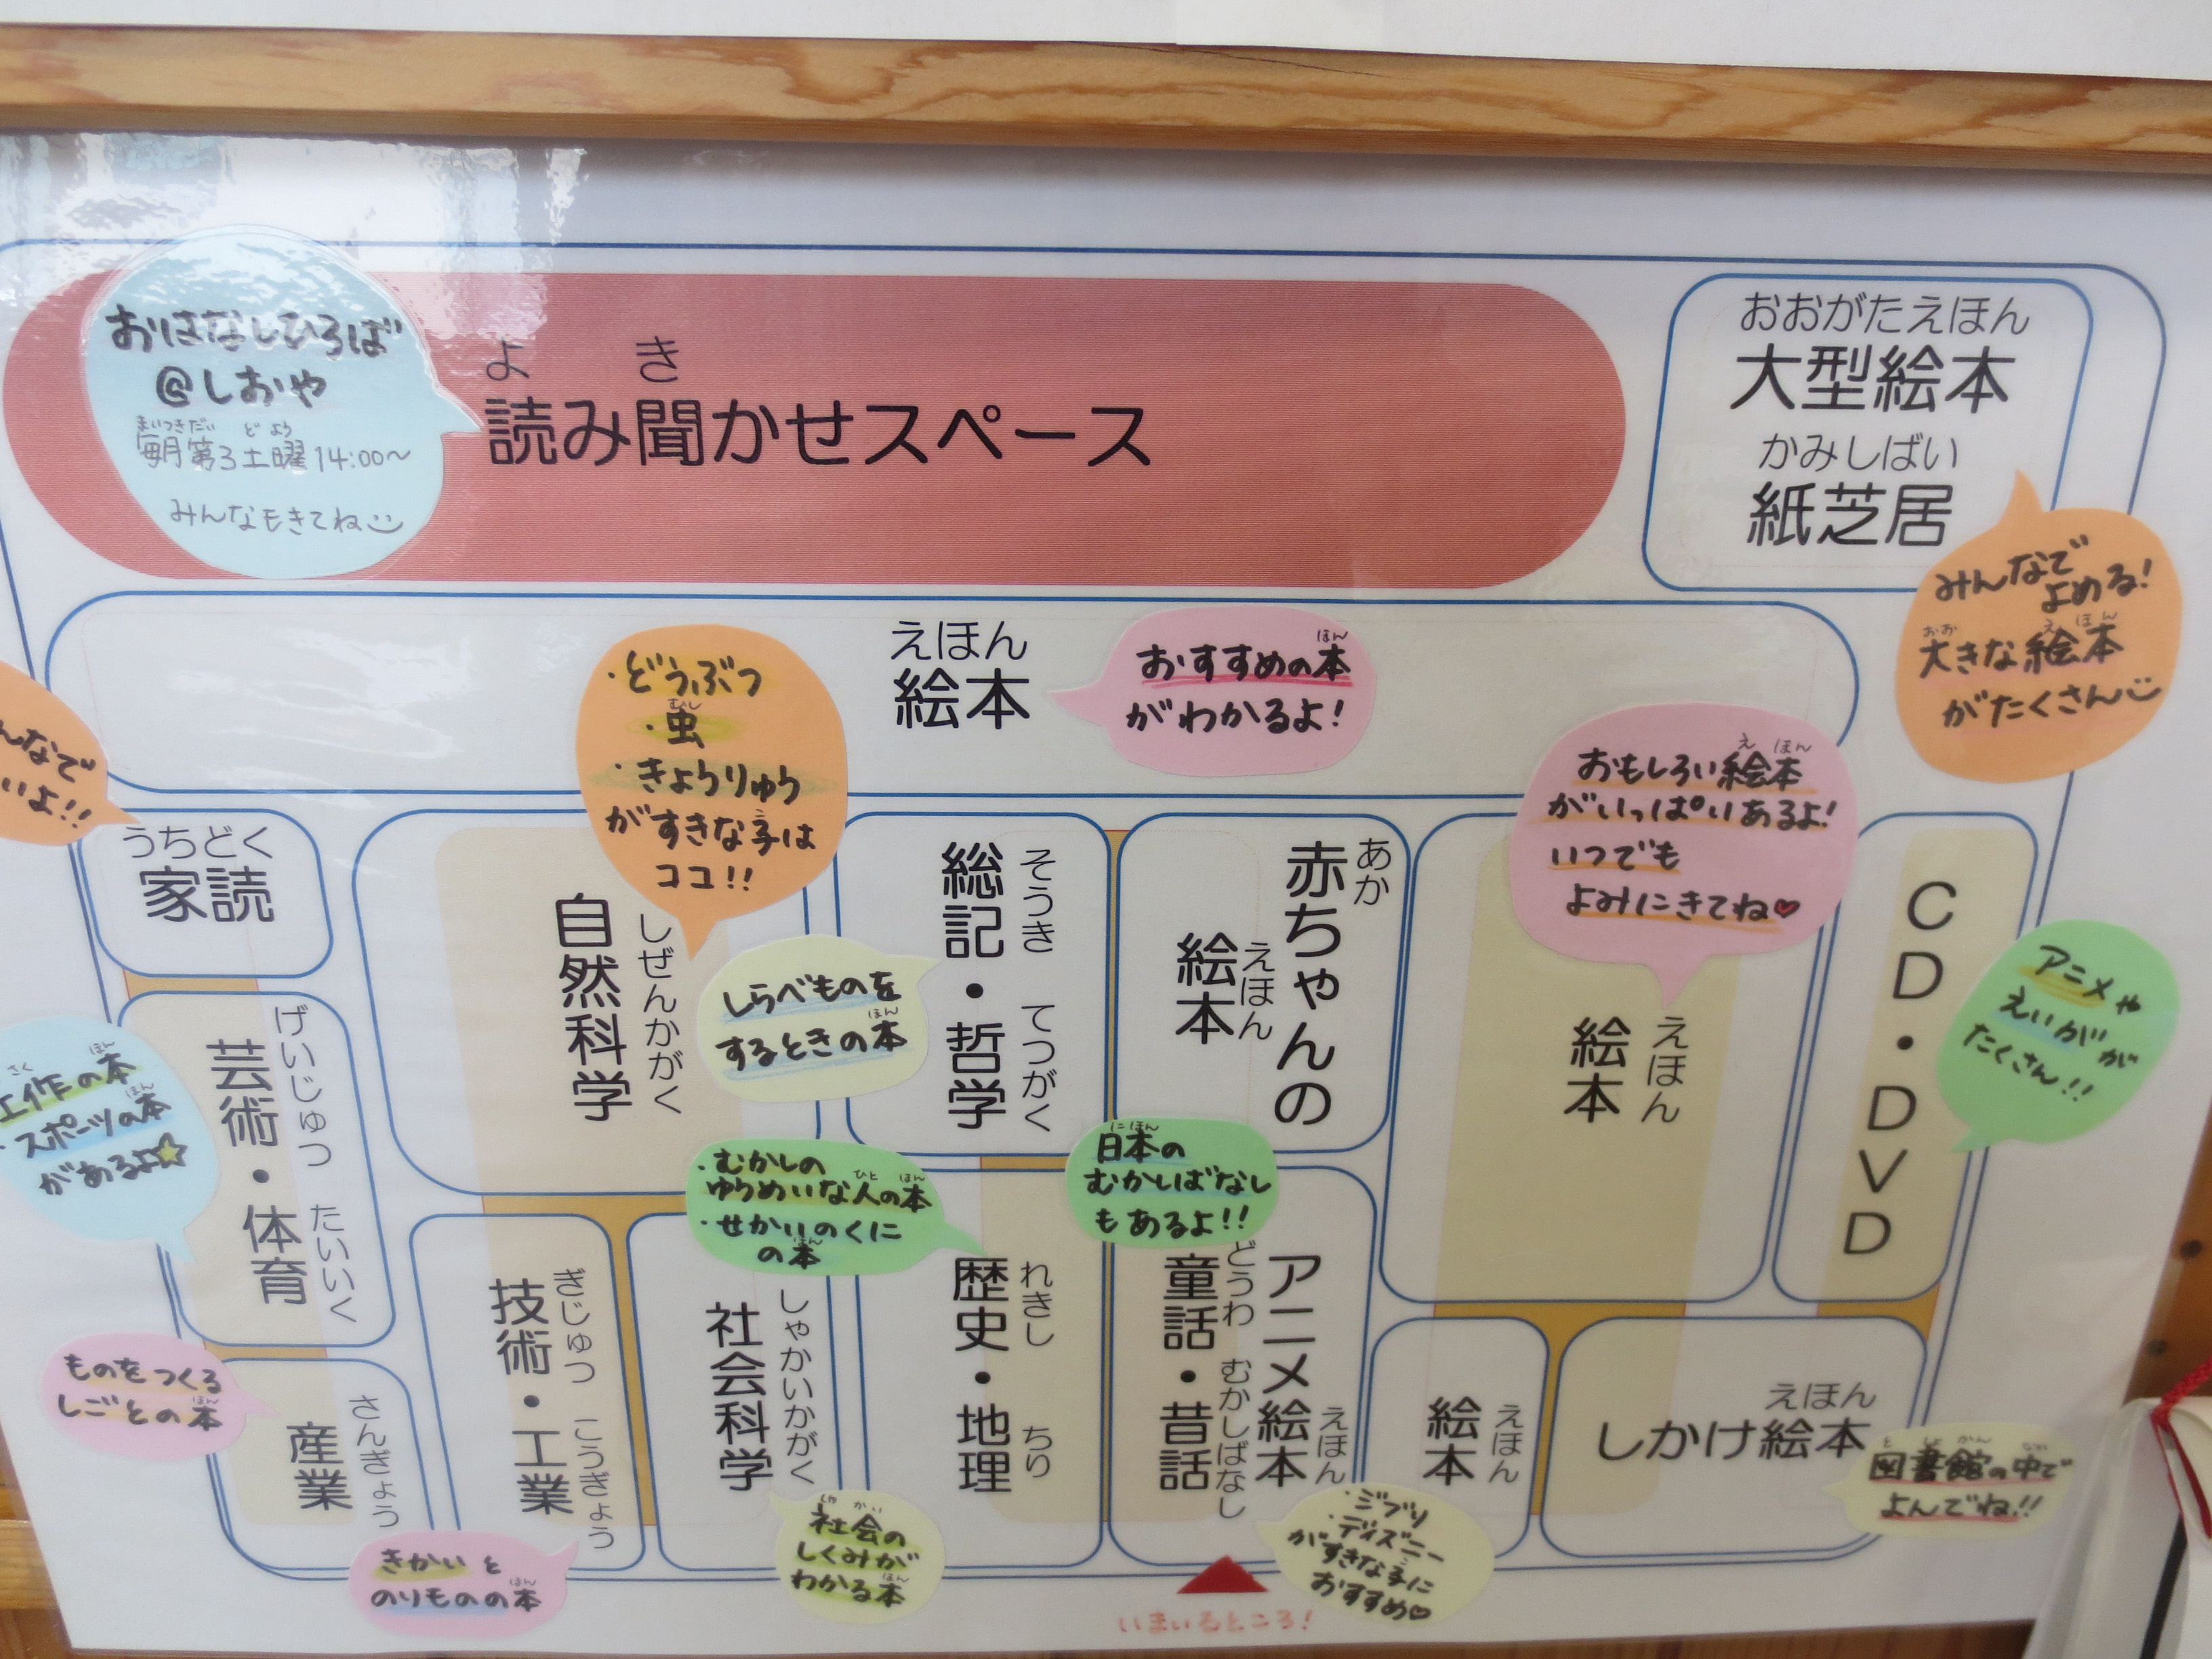 おはなしひろば
@しおや
まいつきだい どよう
毎月第3土曜14:00〜
みんなもきてね
よ き
読み聞かせスペース
おおがたえほん
大型絵本
かみしばい
紙芝居
みんなで
よめる!
おお え ほん
大きな絵本
がたくさん
えほん
絵本
ほん
おすすめの本
がわかるよ!
・どうぶつ
むし
・虫
・きょうりゅう
がすきな子は
ココ!!
え ほん
おもしろい絵本
がいっぱいあるよ!
いつでも
よみにきてね♡
んなで
いよ!!
うちどく
家読
しぜんかがく
自然科学
そうき てつがく
総記・哲学
しらべものを
ほん
するときの本
あか
赤ちゃんの
えほん
絵本
えほん
絵本
CD・DVD
アニメや
えいがが
たくさん!!
げいじゅつ たいいく
芸術・体育
さく ほん
工作の本
ほん
・スポーツの本
があるよ☆
・むかしの
ひと ほん
ゆうめいな人の本
・せかいのくに
ほん
の本
にほん
日本の
むかしばなし
もあるよ!!
さんぎょう
産業
ものをつくる
ほん
しごとの本
ぎじゅつ こうぎょう
技術・工業
きかいと
ほん
のりものの本
しゃかいかがく
社会科学
しゃ かい
社会の
しくみが
ほん
わかる本
れきし ちり
歴史・地理
えほん
アニメ絵本
どうわ むかしばなし
童話・昔話
・ジブリ
・ディズニー
がすきな子に
おすすめ♡
えほん
絵本
えほん
しかけ絵本
と しょ かん なか
図書館の中で
よんでね!!
いまいるところ!